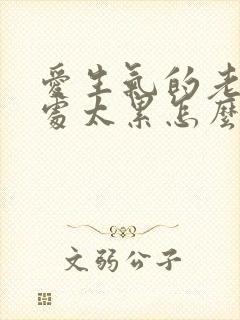 愛生氣的老
處太累怎麼
文弱公子